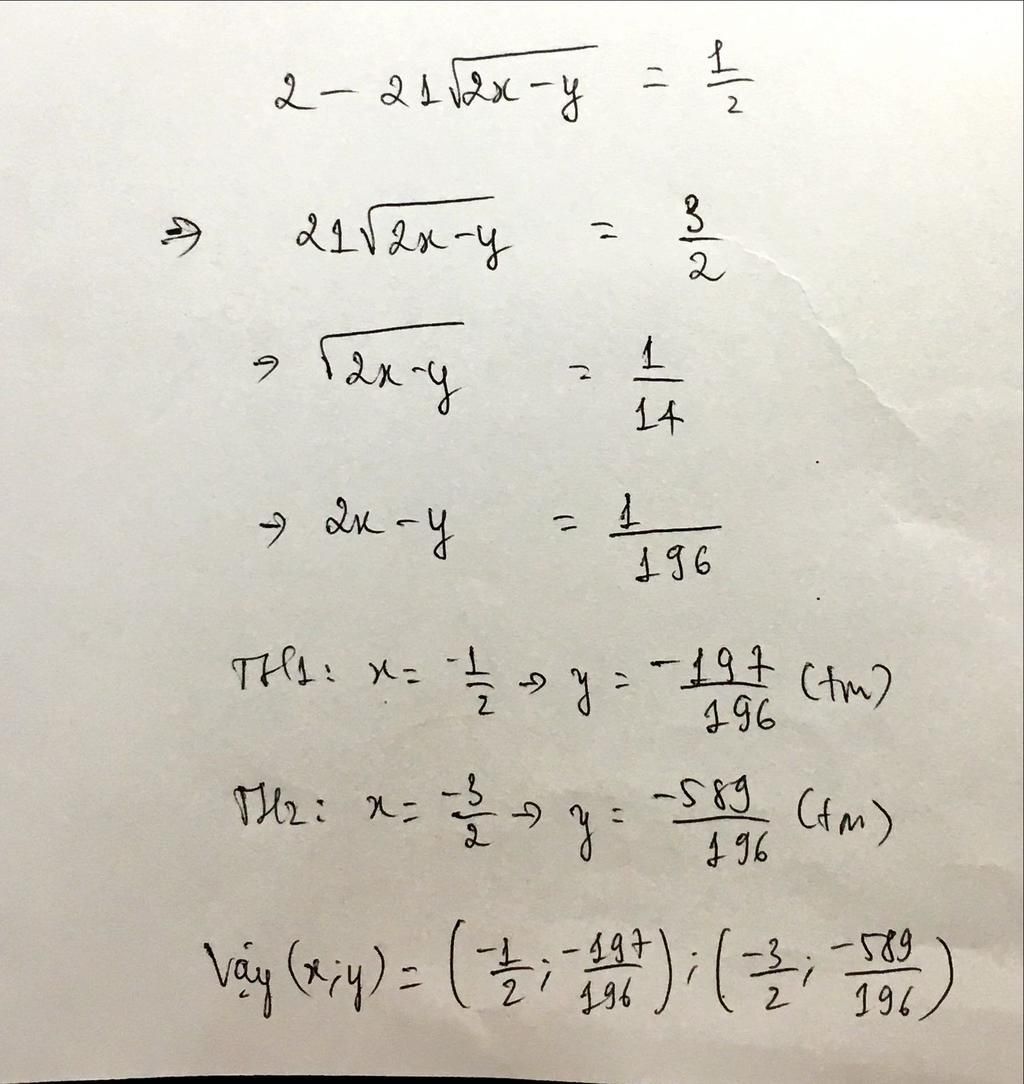 2 - 21√(2x-y) = 1/2
⇒ 21√(2x-y) = 3/2
→ √(2x-y) = 1/14
→ 2x - y = 1/196
TH1: x = -1/2 → y = -197/196 (tm)
TH2: x = -3/2 → y = -589/196 (tm)
Vậy (x;y) = (-1/2; -197/196); (-3/2; -589/196)